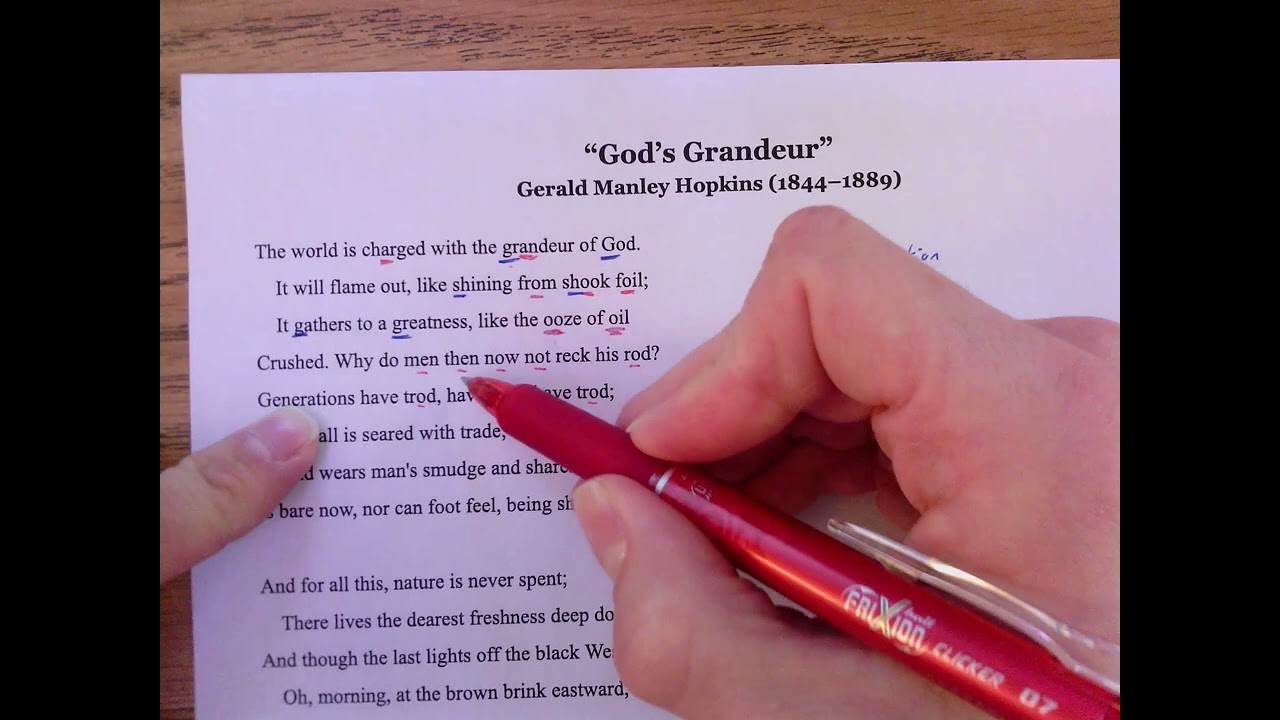 “God’s Grandeur”
Gerald Manley Hopkins (1844–1889)
The world is charged with the grandeur of God.
It will flame out, like shining from shook foil;
It gathers to a greatness, like the ooze of oil
Crushed. Why do men then now not reck his rod?
Generations have trod, have trod;
all is seared with trade;
wears man's smudge and share
bare now, nor can foot feel, being
And for all this, nature is never spent;
There lives the dearest freshness deep
And though the last lights off the black
Oh, morning, at the brown brink eastward,
FRIXION CLICKER 07